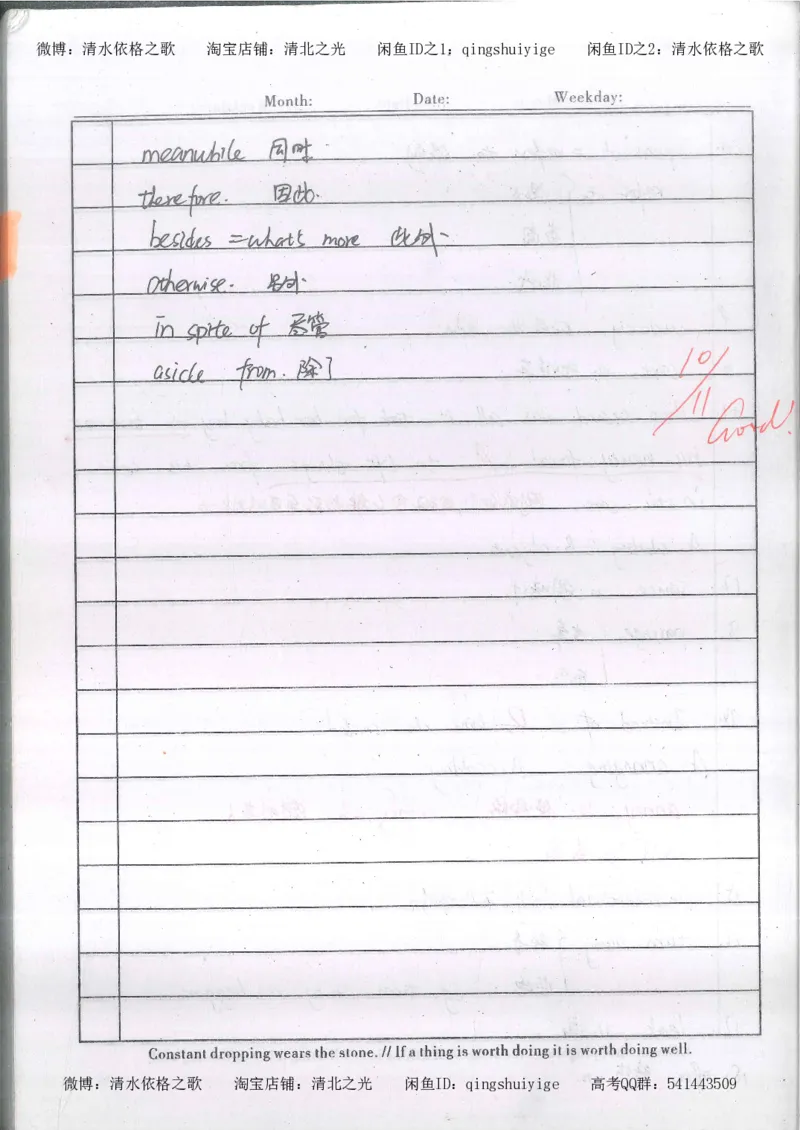 微博：清水依格之歌 淘宝店铺：清北之光 闲鱼ID之1；qingshuiyige 闲鱼ID之2：清水依格之歌
Month: Date: Weekday:
meanwhile 同时
therefore. 因此.
besides =what's more 此外
otherwise.
in spite of 尽管
aside from. 除了
10/11
Good!
Constant dropping wears the stone. // If a thing is worth doing it is worth doing well.
微博：清水依格之歌 淘宝店铺：清北之光 闲鱼ID：qingshuiyige 高考QQ群：541443509